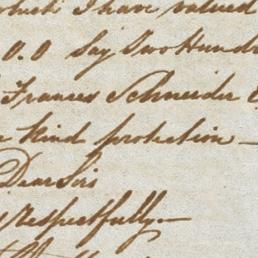 I have valued
0.0 Say Two Hund
Frances Schneider
kind protection —
Dear Sir
Respectfully. —